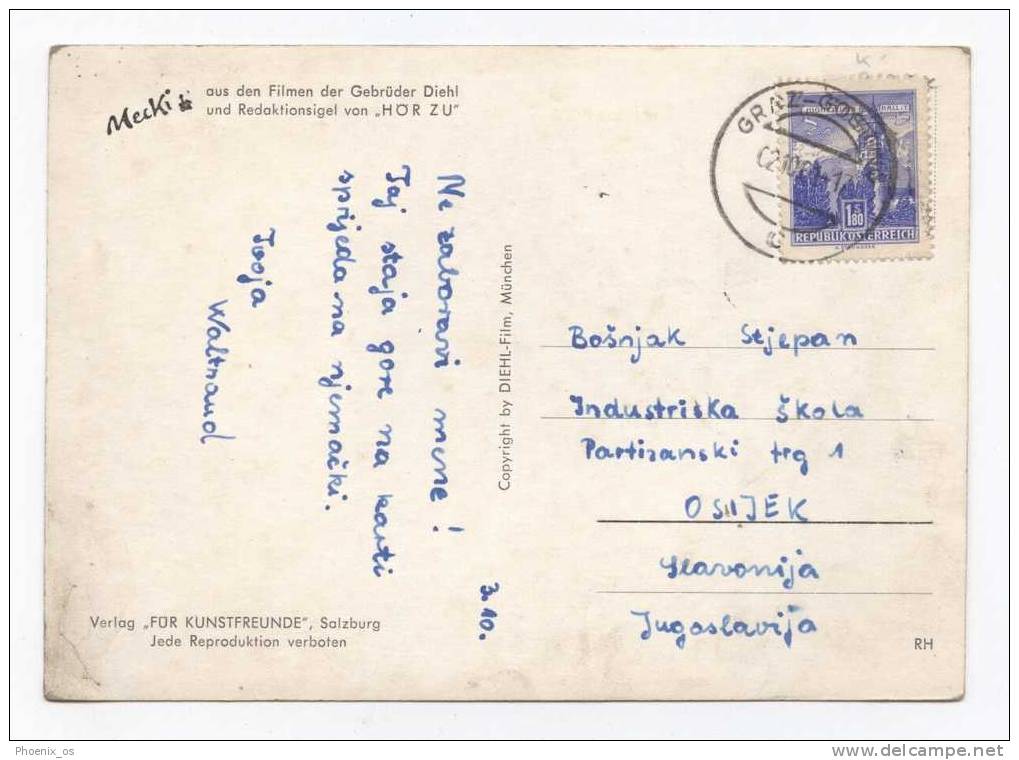 Mecki
aus den Filmen der Gebrüder Diehl
und Redaktionsigel von „HÖR ZU"
Ne zaboravi mene!
Taj staja gore na karti
sprijeda na njemački.
Tvoja
Waltraud
3.10.
Copyright by DIEHL-Film, München
Verlag „FÜR KUNSTFREUNDE", Salzburg
Jede Reproduktion verboten
GRAZ-
1 S 80
REPUBLIK ÖSTERREICH
Bošnjak Stjepan
Industriska škola
Partizanski trg 1
OSIJEK
Slavonija
Jugoslavija
RH
Phoenix_os
www.delcampe.net